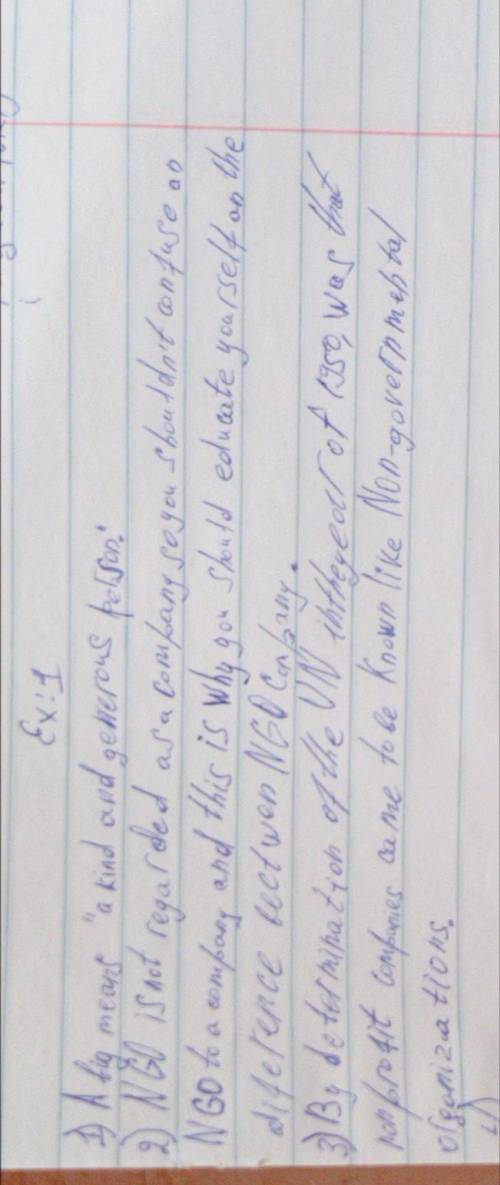 Ex:1
1) A big means "a kind and generous person."
2) NGO is not regarded as a company so you shouldn't confuse an
NGO to a company and this is why you should educate yourself on the
diference bectwen NGO Company.
3) By determination of the UN in the year of 1950, was that
nonprofit companies came to be known like Non-governmental
organizations.